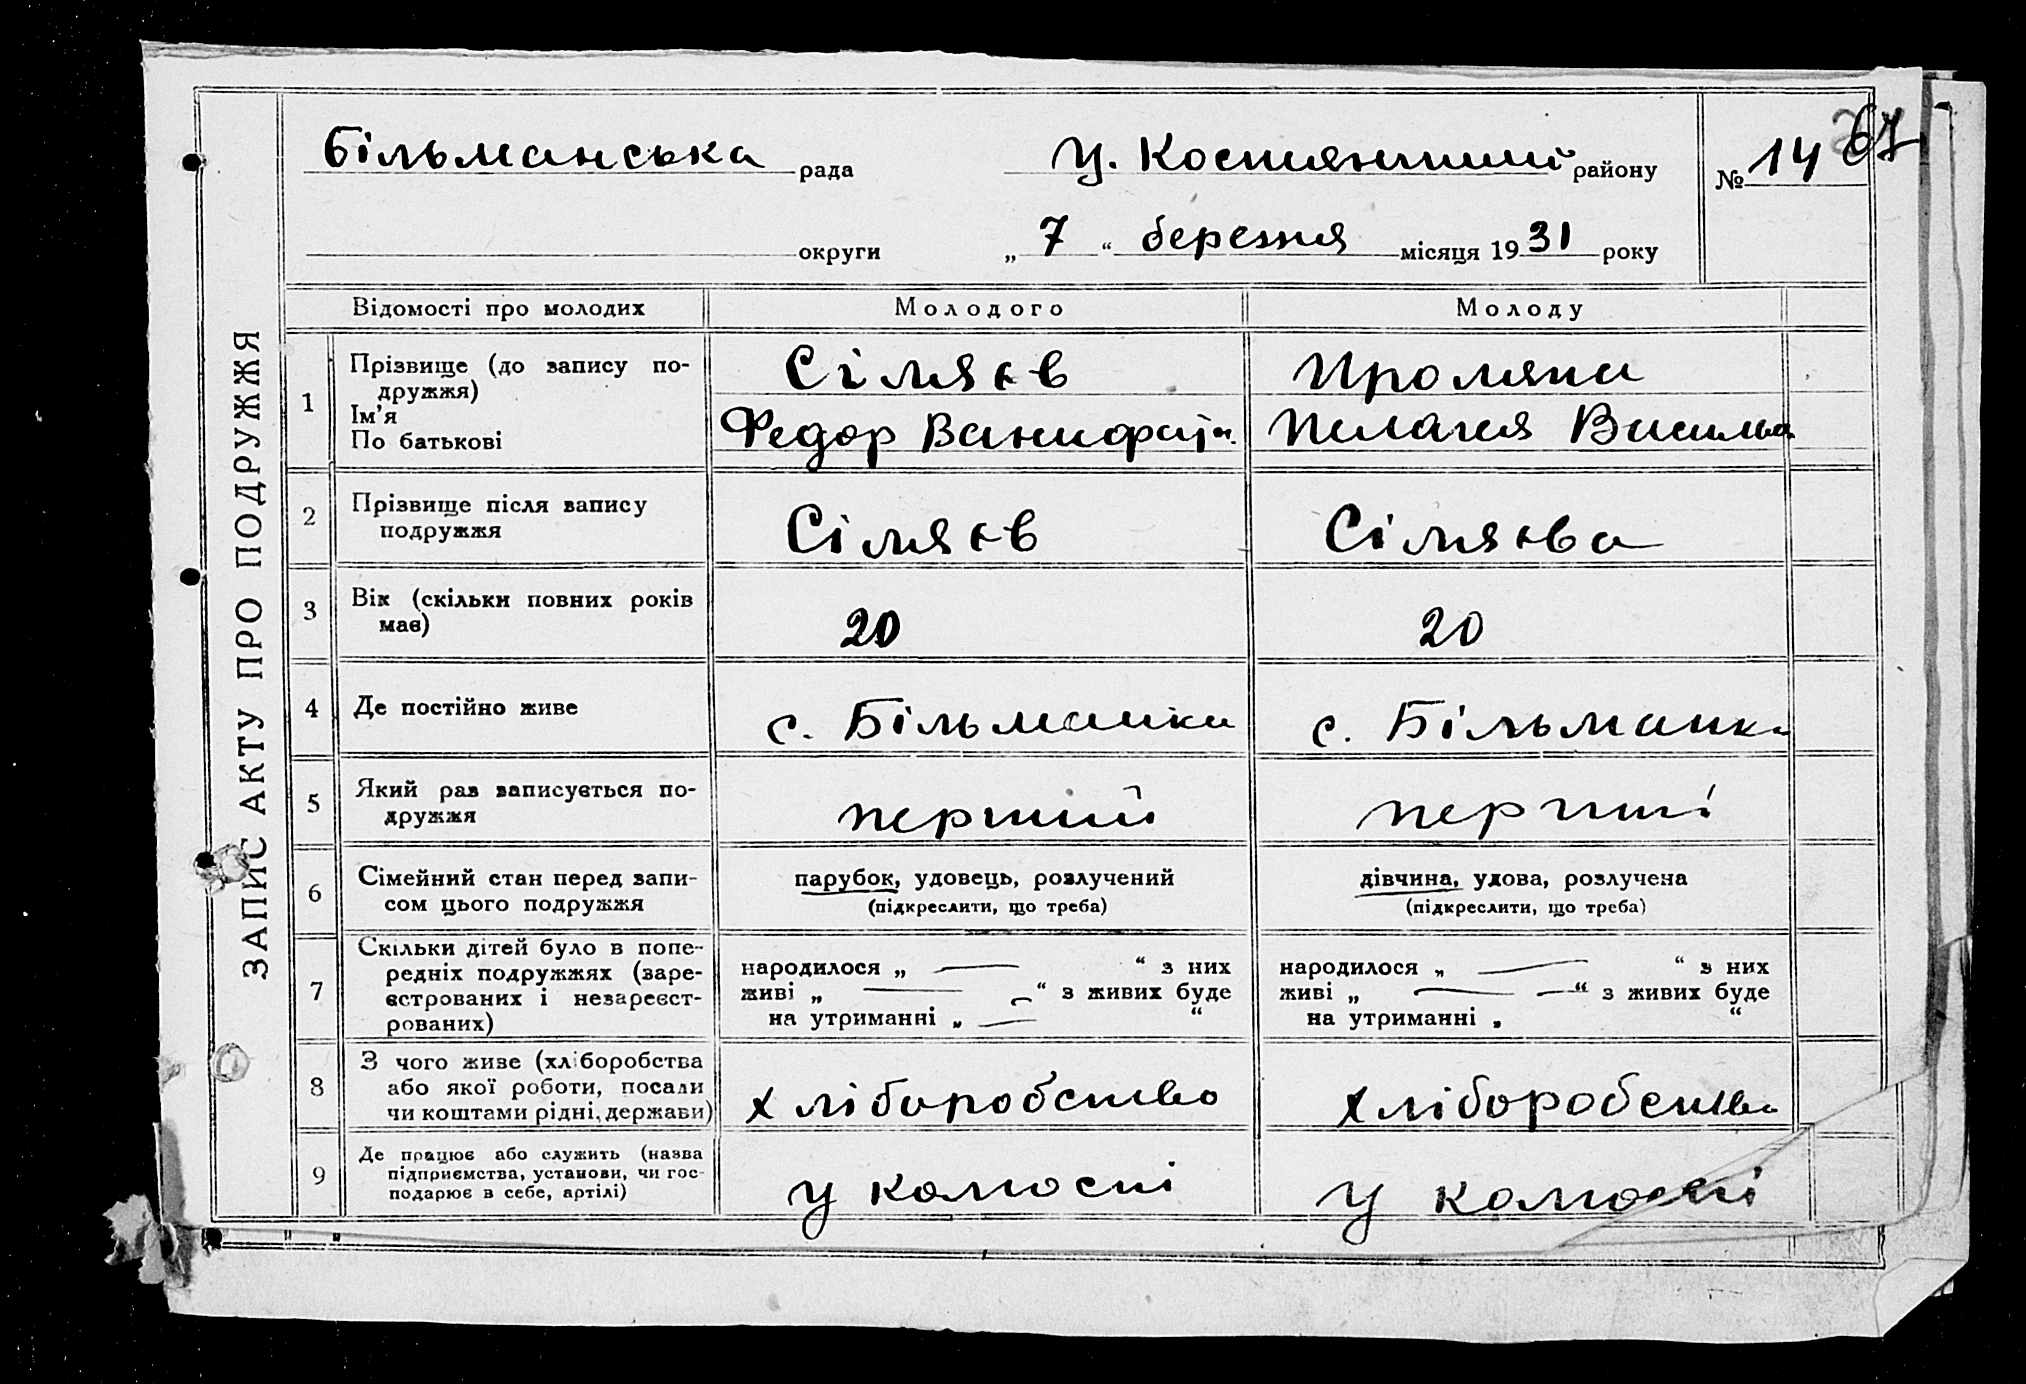 Більманська рада
Ц. Костянтини району
№ 14
67
округи
„ 7 “ березня місяця 1931 року
ЗАПИС АКТУ ПРО ПОДРУЖЖЯ
Відомості про молодих Молодого Молоду
1 Прізвище (до запису по-
дружжя)
Ім’я
По батькові
Сіляєв
Федор
Пелагея
2 Прізвище після запису
подружжя
Сіляєв Сіляєва
3 Вік (скільки повних років
має)
20 20
4 Де постійно живе
с. Більманка с. Більманка
5 Який раз записується по-
дружжя
перший перший
6 Сімейний стан перед запи-
сом цього подружжя
парубок, удовець, розлучений
(підкреслити, що треба)
дівчина, удова, розлучена
(підкреслити, що треба)
7 Скільки дітей було в попе-
редніх подружжях (заре-
єстрованих і незареєст-
рованих)
народилося „ — “ з них
живі „ — “ з живих буде
на утриманні „ — “
народилося „ — “ з них
живі „ — “ з живих буде
на утриманні „ “
8 З чого живе (хліборобства
або якої роботи, посади
чи коштами рідні, держави)
хліборобство хліборобство
9 Де працює або служить (назва
підприємства, установи, чи гос-
подарює в себе, артілі)
у колгоспі у колгоспі